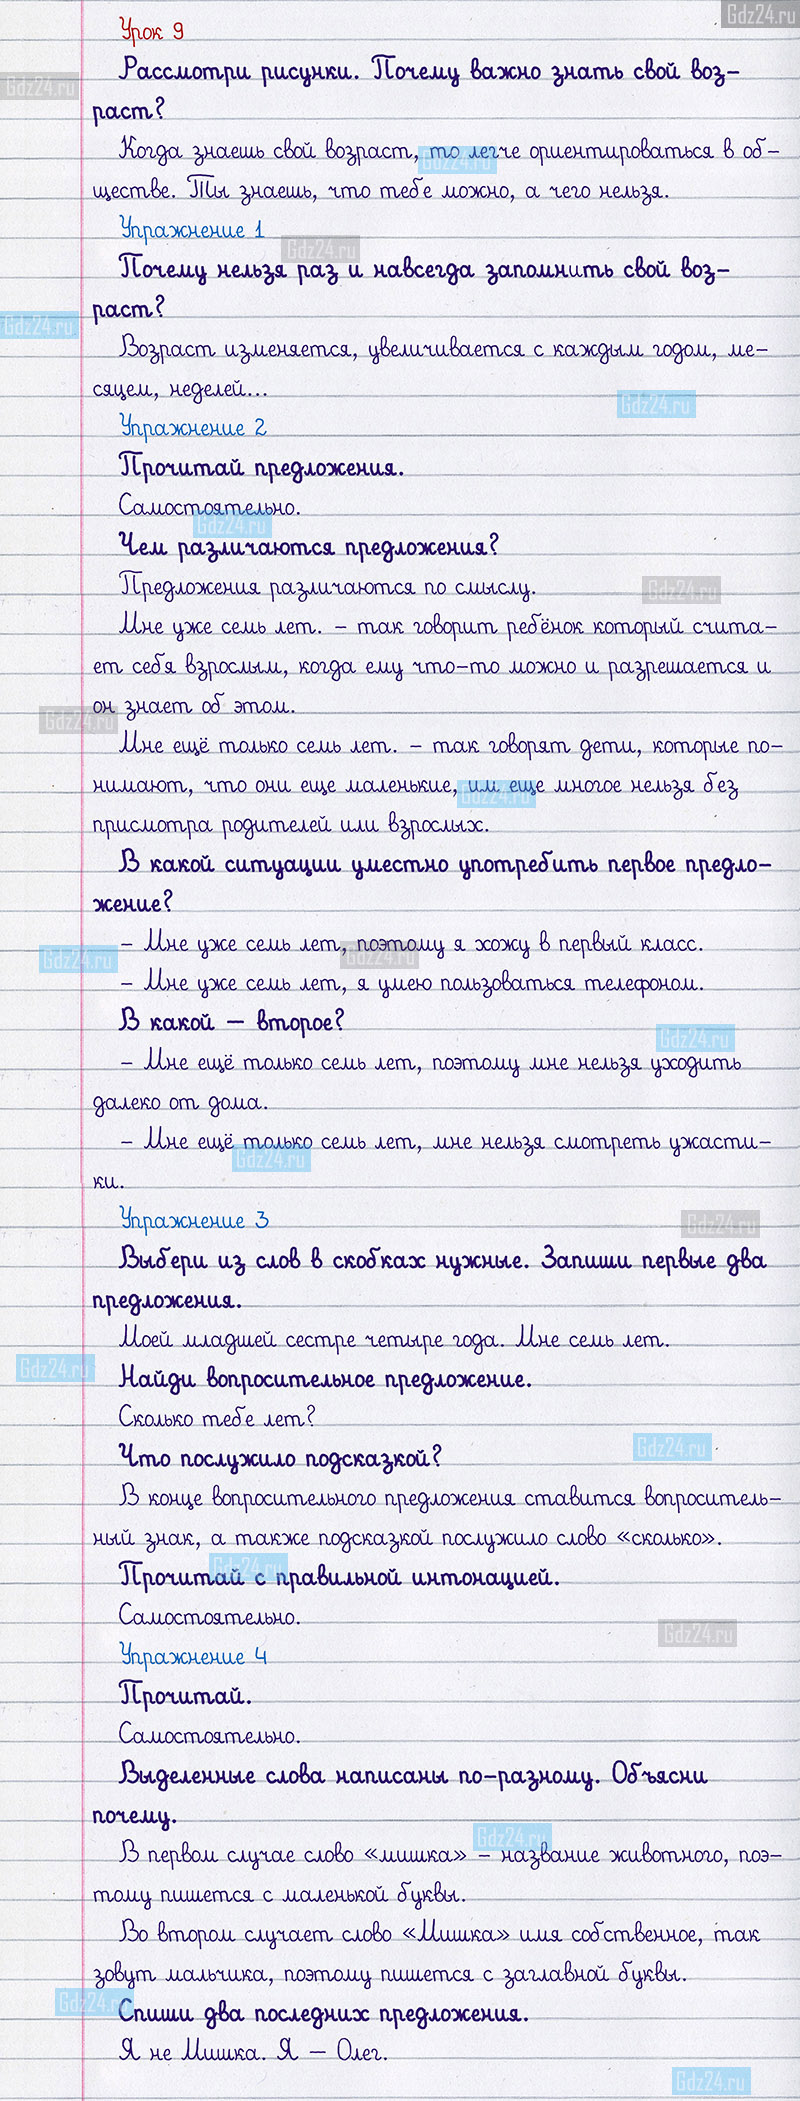 Gdz24.ru
Урок 9
Рассмотри рисунки. Почему важно знать свой воз-
Gdz24.ru
раст?
Когда знаешь свой возраст, то легче ориентироваться в об-
Gdz24.ru
ществе. Ты знаешь, что тебе можно, а чего нельзя.
Упражнение 1
Gdz24.ru
Почему нельзя раз и навсегда запомнить свой воз-
раст?
Gdz24.ru
Возраст изменяется, увеличивается с каждым годом, ме-
сяцем, неделей...
Gdz24.ru
Упражнение 2
Прочитай предложения.
Самостоятельно.
Gdz24.ru
Чем различаются предложения?
Предложения различаются по смыслу.
Gdz24.ru
Мне уже семь лет. – так говорит ребёнок который счита-
ет себя взрослым, когда ему что-то можно и разрешается и
он знает об этом.
Gdz24.ru
Мне ещё только семь лет. – так говорят дети, которые по-
нимают, что они еще маленькие, им еще многое нельзя без
Gdz24.ru
присмотра родителей или взрослых.
В какой ситуации уместно употребить первое предло-
жение?
– Мне уже семь лет, поэтому я хожу в первый класс.
Gdz24.ru
Gdz24.ru
– Мне уже семь лет, я умею пользоваться телефоном.
В какой – второе?
Gdz24.ru
– Мне ещё только семь лет, поэтому мне нельзя уходить
далеко от дома.
– Мне ещё только семь лет, мне нельзя смотреть ужасти-
Gdz24.ru
ки.
Упражнение 3
Gdz24.ru
Выбери из слов в скобках нужные. Запиши первые два
предложения.
Моей младшей сестре четыре года. Мне семь лет.
Gdz24.ru
Найди вопросительное предложение.
Сколько тебе лет?
Gdz24.ru
Что послужило подсказкой?
В конце вопросительного предложения ставится вопроситель-
ный знак, а также подсказкой послужило слово «сколько».
Gdz24.ru
Прочитай с правильной интонацией.
Самостоятельно.
Gdz24.ru
Упражнение 4
Прочитай.
Самостоятельно.
Выделенные слова написаны по-разному. Объясни
почему.
Gdz24.ru
В первом случае слово «мишка» – название животного, поэ-
тому пишется с маленькой буквы.
Во втором случает слово «Мишка» имя собственное, так
зовут мальчика, поэтому пишется с заглавной буквы.
Gdz24.ru
Спиши два последних предложения.
Я не Мишка. Я – Олег.
Gdz24.ru